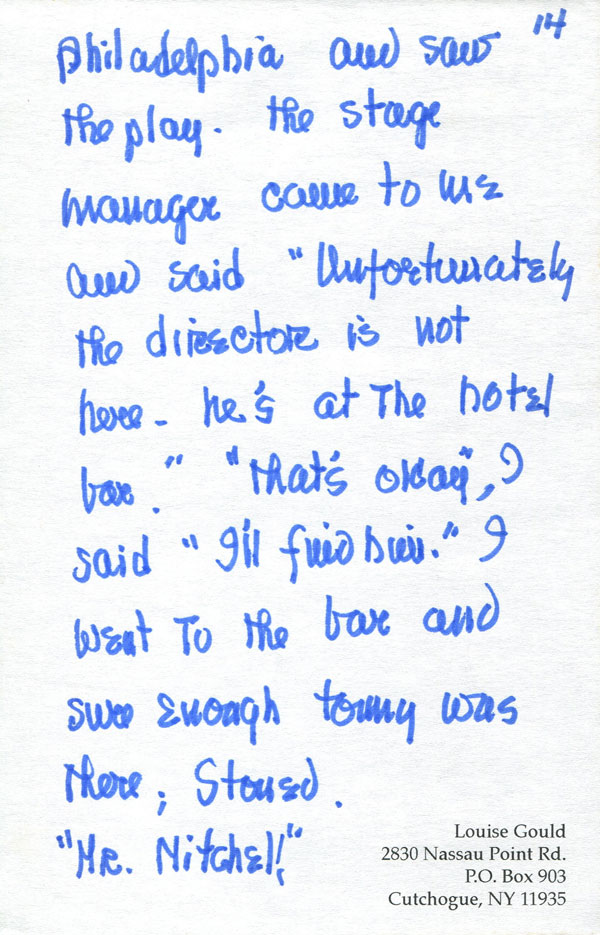 14
Philadelphia and saw
the play. the stage
manager came to me
and said "Unfortunately
the director is not
here. he's at The hotel
bar." "that's okay", I
said "I'll find him." I
went To the bar and
sure enough tommy was
there; Stoned.
"MR. Mitchel!"
Louise Gould
2830 Nassau Point Rd.
P.O. Box 903
Cutchogue, NY 11935